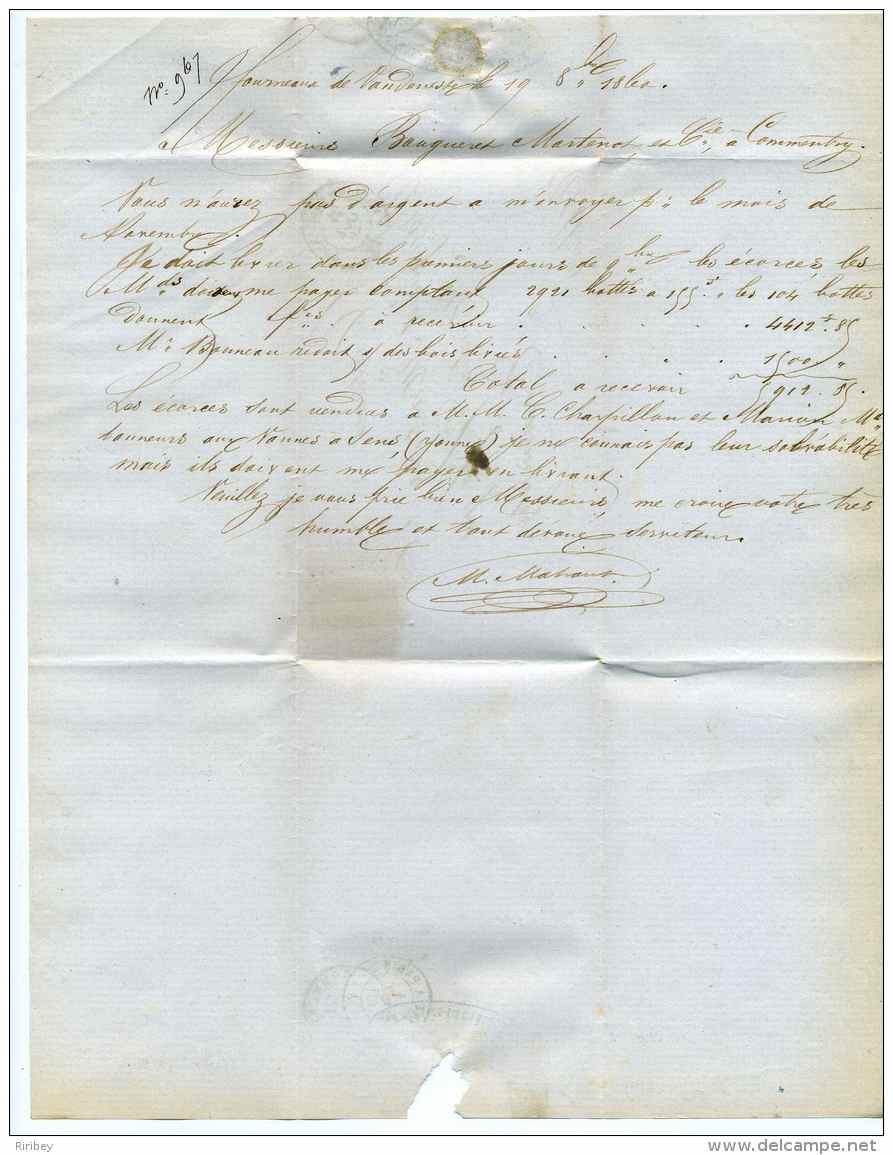 No. 967
fourneaux de Vandenesse le 19 8bre 1860.
a Messieurs Bougueret Martenot et Cie, a Commentry.
Vous n'aurez pas d'argent a m'envoyer pr le mois de
Novembre.
Je doit livrer dans les premiers jours de 9bre les écorces, les
Mds doivent me payer comptant 2921 bottes a 155f " les 104 bottes
donnent a recevoir . . . . . . 4412f. 85
Mr Bonneau redoit s/ des bois livrés . . . . 1500 "
Total a recevoir 5912. 85.
Les écorces sont vendues a M.M. C. Charpillon et Marion Mds
tanneurs aux Vannes a Sens (Yonne) je ne connais pas leur solvabilité
mais ils doivent me payer en livrant.
Veuillez je vous prie bien Messieurs, me croire votre très
humble et tout dévoué serviteur.
M. Mahaut.
Riribey
www.delcampe.net